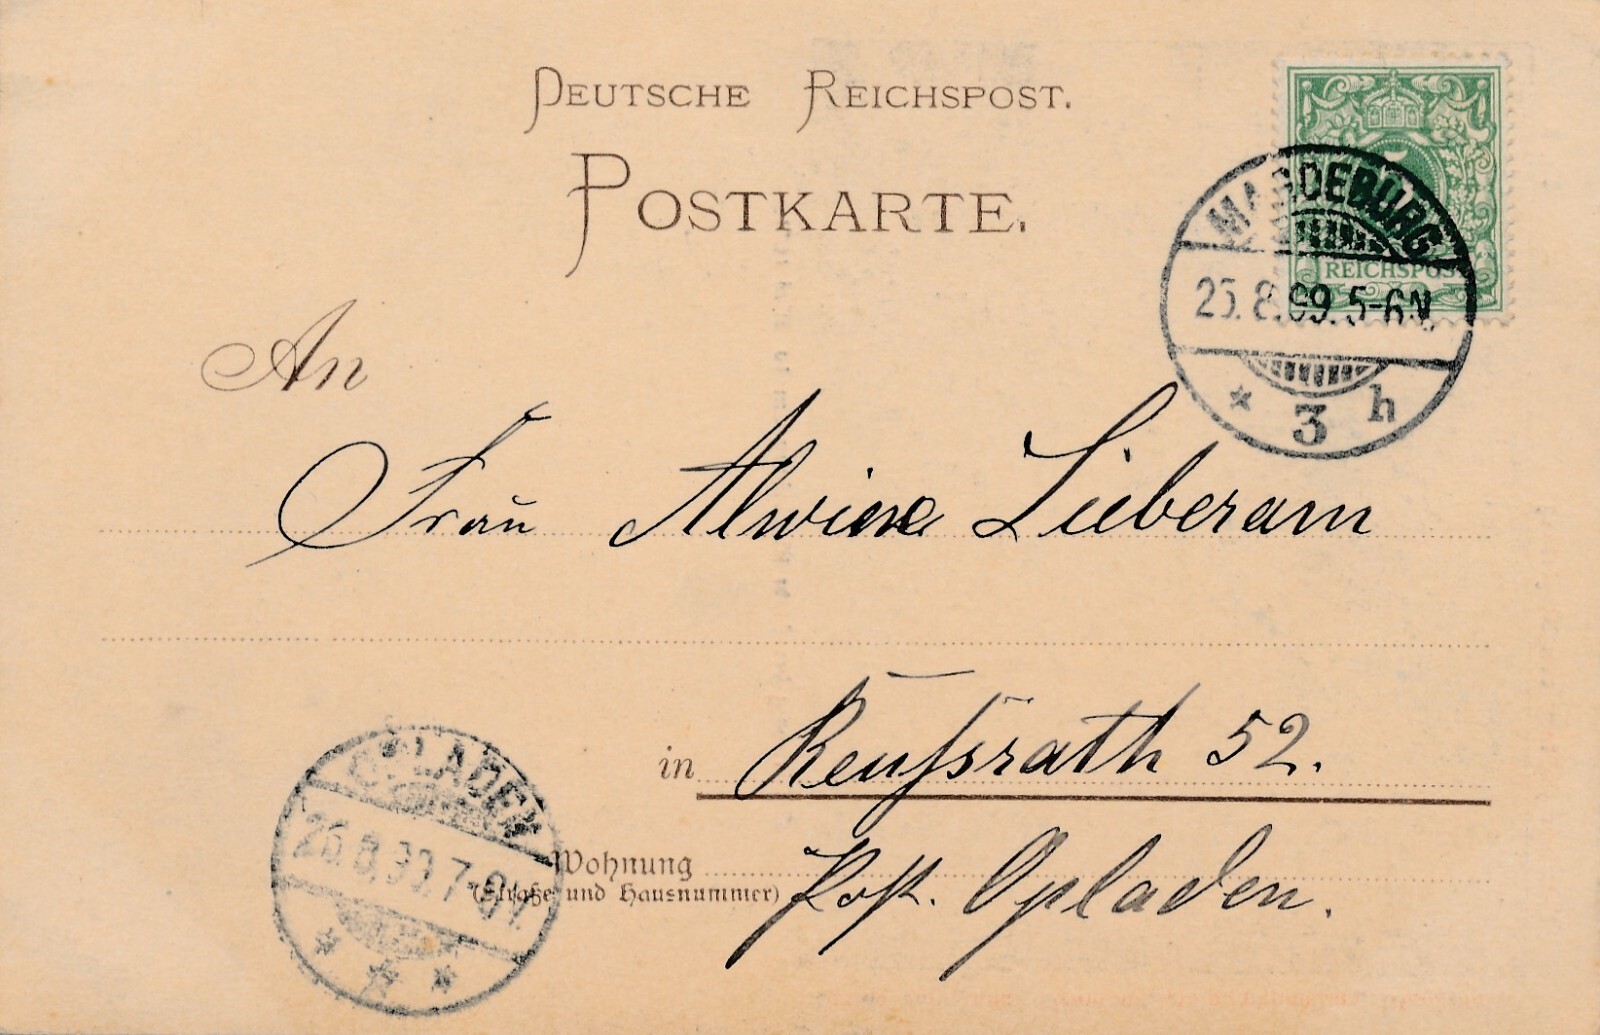 DEUTSCHE REICHSPOST.
POSTKARTE.
5
REICHSPOST
MAGDEBURG
25.8.99.5-6N.
* 3 h
An
Frau Alwine Lieberam
in Reuſsrath 52.
Wohnung
(Straße und Hausnummer)
Post. Opladen.
OPLADEN
26.8.99.7-8V.
* * *